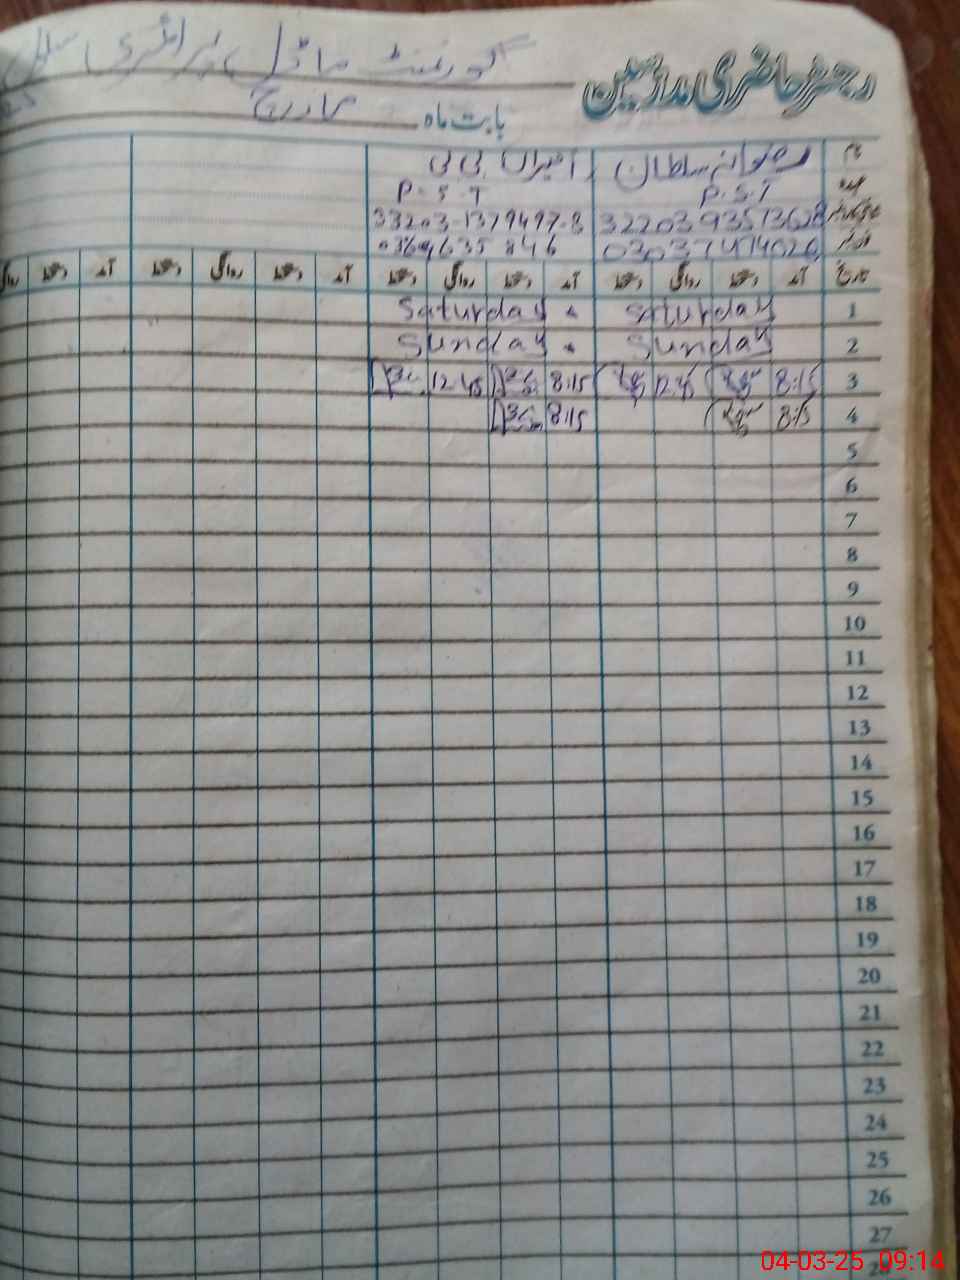 رجسٹر حاضری مدارسین گورنمنٹ ماڈل پرائمری سکول
بابت ماہ مارچ
نام رضوانہ سلطان امیراں بی بی
عہدہ P.S.T P.S.T
3220393513628 33203-1379497-8
03037414026
تاریخ آمد دستخط روانگی دستخط آمد دستخط روانگی دستخط آمد دستخط روانگی دستخط آمد دستخط روانگی
1 Saturday Saturday
2 Sunday Sunday
3 8:15 12:45 8:15 12:45
4 8:15 8:15
5
6
7
8
9
10
11
12
13
14
15
16
17
18
19
20
21
22
23
24
25
26
27
04-03-25 09:14